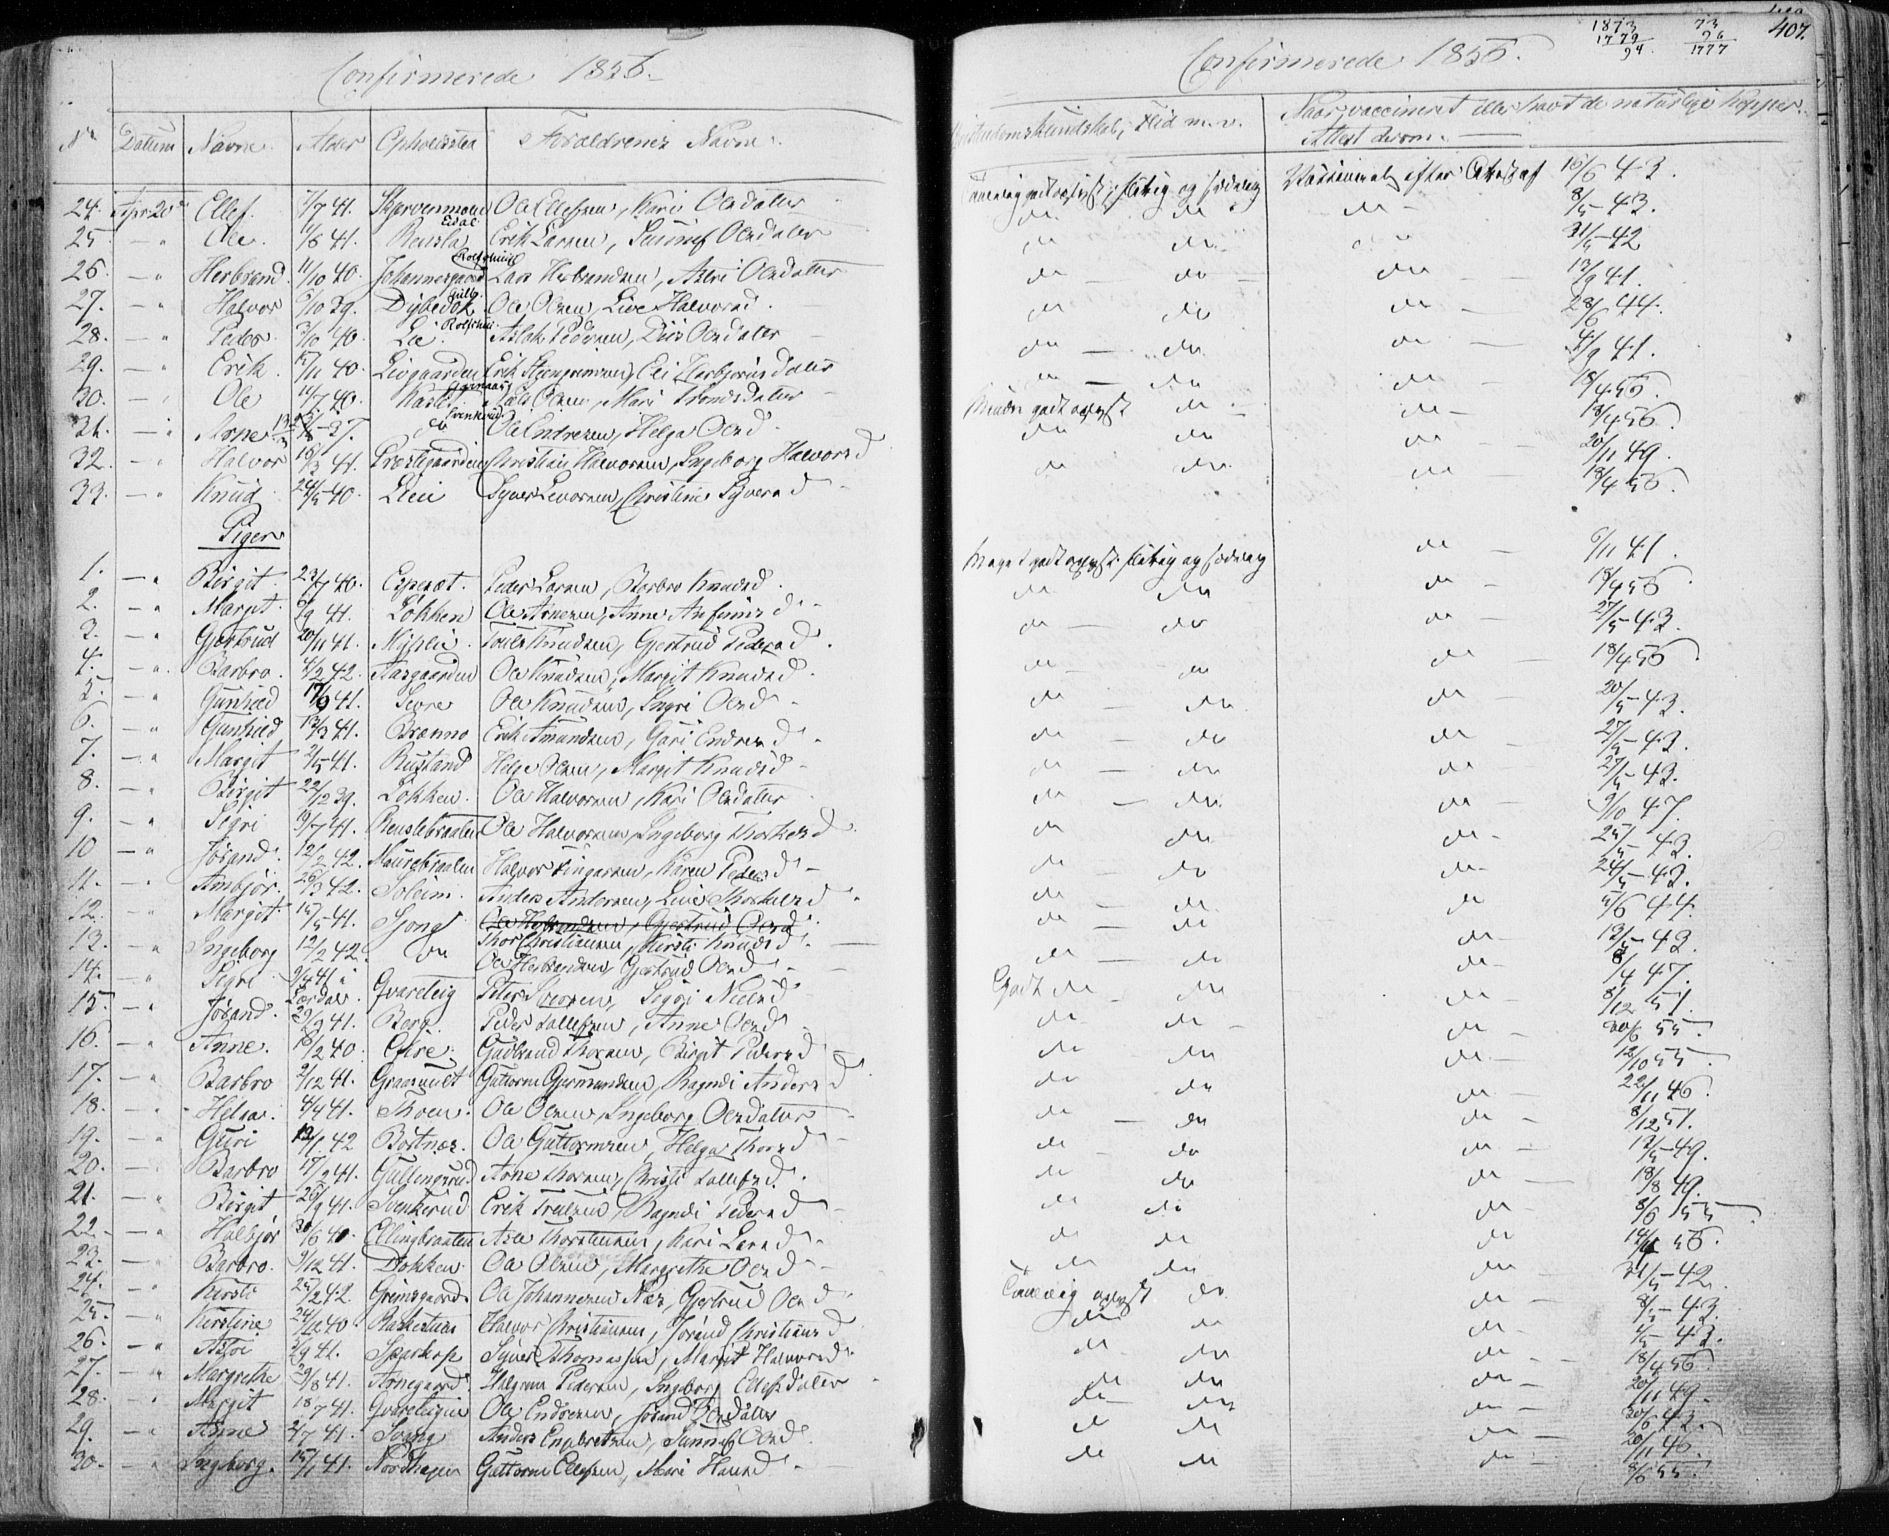 Confirmerede 1856.
No Datum Navne. Alder Opholdssted Forældrenes Navne.
24. Apr. 20de Ellef. 7/7 41. Skjervenmoen Ole Ellefsen, Kari Olsdatter
Esdal
25. — " Ole. 11/6 41. Rensla Erik Larsen, Sunnef Olsdatter
Rolfshuus
26. — " Herbrand. 11/10 40. Johannesgaard Lars Herbrandsen, Astri Olsdatter
Gulb.
27. — " Halvor 6/10 39. Dybedok Ole Olsen, Live Halvorsd.
Rolfshus.
28. — " Peder 3/10 40. Lie. Aslak Pedersen, Liv Olsdatter
29. — " Erik. 15/11 40. Livgaarden Erik Steingrimsen, Eli Herbjørnsdatter
30. — " Ole 11/7 40. Olsen, Mari Trondsdatter
Svenkrud.
31. — " Arne 37. do Ole Endresen, Helga Olsd.
32. — " Halvor 16/3 41. Præstegaarden Christian Halvorsen, Ingeborg Halvorsd
33. — " Knud 24/5 40. Lien Syver Levorsen, Christine Syversd
Piger
1. — " Birgit. 23/7 40. Espeset. Peder Larsen, Barbro Knudsd.
2. — " Margit. 6/9 41. Løkken Ole Arnesen, Anne Anfinsd.
3. — " Gjertrud 20/11 41. Myhlie. Knudsen, Gjertrud Pedersd.
4. — " Barbro. 4/2 42. Aasgaarden Ole Knudsen, Margit Knudsd.
5. — " Gunhild 17/9 41. Sevre Ole Knudsen, Ingri Olsd
6. — " Gunhild 13/3 41. Brenno Erik Amundsen, Guri Endresd.
7. — " Margit 2/5 41. Rustand Helge Olsen, Margit Knudsd
8. — " Birgit 22/12 39. Løkken. Ole Halvorsen, Kari Olsdatter
9. — " Sigri 9/7 41. Renslebraaten Ole Halvorsen, Ingeborg Thorkersd.
10 — " Jørand. 12/2 42. Haurebraaten Halvor Fingarsen, Karen Pedersd
11. — " Ambjør. 26/3 42. Soleim. Anders Andersen, Live Thorkelsd.
12. — " Margit 15/5 41. Sjong Ole Herbrandsen, Gjertrud Olsd
Thor Christiansen, Kirsti Knudsd.
13. — " Ingeborg 12/2 42. do Ole Herbrandsen, Gjertrud Olsd
14. — " Sigri 9/4 41 i Lærdal. Gvareteig Peter Iversen, Sigri Nielsd
15. — " Jørand. 29/9 41. Berg. Peder Tollefsen, Anne Olsd
16. — " Anne. 16/2 40. Eire. Gudbrand Thorsen, Birgit Pedersd
17. — " Barbro 2/12 41. Graasuelt Guttorm Germundsen, Ragndi Andersd
18. — " Helga. 4/4 41. Thoen. Ole Olsen, Ingeborg Olsdatter
19. — " Guri 13/1 42 Bortnæs. Ole Guttormsen, Helga Thorsd
20. — " Barbro 17/2 41. Gullingsrud Arne Thorsen, Christi Tollefsd.
21. — " Birgit 26/9 41. Svenkerud Erik Truelsen, Ragndi Pedersd
22. — " Halbjør 30/6 40. Ellingbraaten Asle Thorstensen, Kari Larsd
23. — " Barbro. 9/12 41. Dokken Ole Olsen, Margrethe Olsd
24. — " Kirsti 25/2 42. Grimsgaard. Ole Johannesen Næs, Gjertrud Olsd.
25. — " Kirstine 24/12 40. Halvor Christiansen, Jørand Christiansd
26. — " Astri 2/9 41. Syver Thomassen, Margit Halvorsd.
27. — " Margrethe 29/8 41. Arnegaard. Halgrim Pedersen, Ingeborg Ellefsdatter
28. — " Margit 18/7 41. Gvareteigen Ole Endresen, Jørand Olsdatter
29. — " Anne 2/7 41. Sagng Anders Engebretsen, Sunnef Olsd.
30. — " Ingeborg. 15/1 41. Nordhagen Guttorm Ellefsen, Mari Hansd
Confirmerede 1856.
1873
1779
94.
73
96
1777
407.
Christendomskundskab, Flid m.v. Naar vaccineret eller havt de naturlige Kopper. Attest derom.
Temmelig godt oplyst, flittig og sædelig Vaccineret efter Attest af 16/6 43.
do do do 8/5 43.
do do do 31/5 42
do do do 13/9 41.
do do do 28/6 44.
do do do 4/9 41.
do do do 18/4 56.
Mindre godt oplyst do do 18/4 56.
do do do 20/11 49.
do do do 18/4 56.
Meget godt oplyst, flittig og sædelig do 6/11 41.
do do do 18/4 56
do do do 27/5 43.
do do do 18/4 56
do do do 20/5 43.
do do do 27/5 43.
do do do 27/5 43.
do do do 9/10 47.
do do do 25/5 43.
do do do 24/5 43.
do do do 5/6 44.
do do do 13/5 43.
do do do 8/4 47.
Godt do do do 8/12 51.
do do do 30/6 55.
do do do 12/10 55.
do do do 22/11 46.
do do do 8/12 51.
do do do 12/5 49.
do do do 18/8 49.
do do do 8/6 55.
do do do 14/4 56.
do do do 31/5 42.
Temmelig oplyst do do 8/5 43.
do do do 1/5 43.
do do do 18/4 56
do do do 20/11 49.
do do do 30/6 43.
do do do 20/11 46.
do do do 8/6 55.